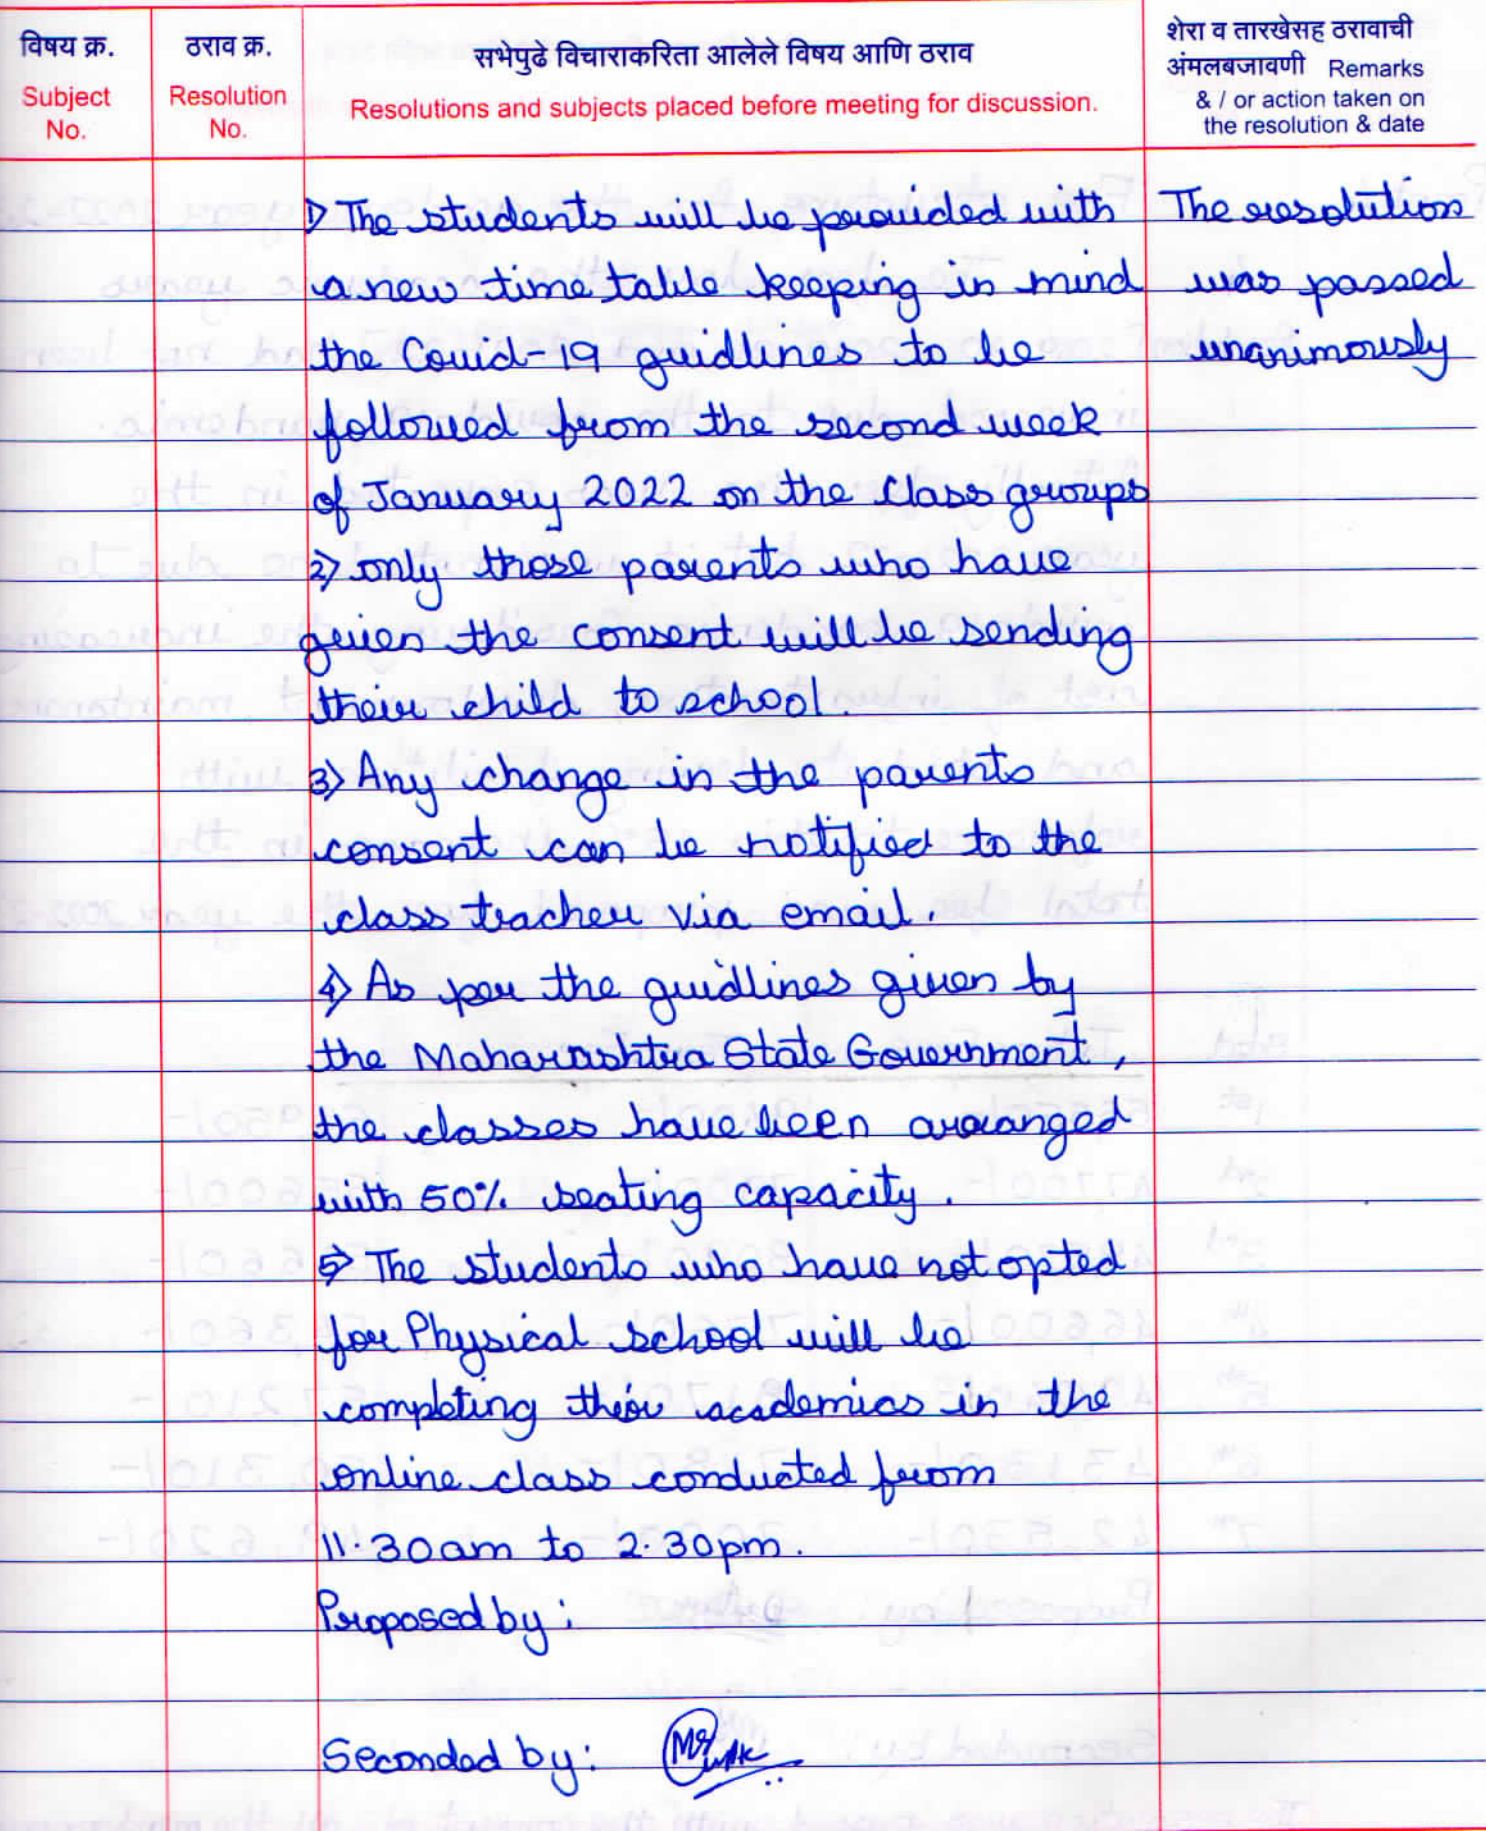 विषय क्र.
Subject
No.
ठराव क्र.
Resolution
No.
सभेपुढे विचाराकरिता आलेले विषय आणि ठराव
Resolutions and subjects placed before meeting for discussion.
शेरा व तारखेसह ठरावाची
अंमलबजावणी Remarks
& / or action taken on
the resolution & date
1) The students will be provided with
a new time table keeping in mind
the Covid-19 guidlines to be
followed from the second week
of January 2022 on the class groups
2) only those parents who have
given the consent will be sending
their child to school.
3) Any change in the parents
consent can be notified to the
class teacher via email.
4) As per the guidlines given by
the Maharashtra State Government,
the classes have been arranged
with 50% seating capacity.
5) The students who have not opted
for Physical school will be
completing their academics in the
online class conducted from
11.30am to 2.30pm.
Proposed by:
Seconded by:
The resolution
was passed
unanimously